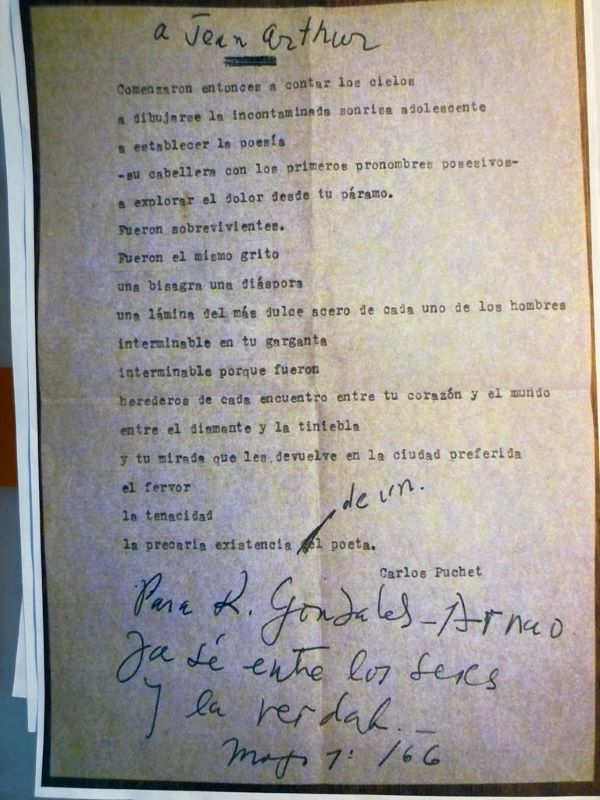 a Jean Arthur
Comenzaron entonces a contar los cielos
a dibujarse la incontaminada sonrisa adolescente
a establecer la poesía
-su cabellera con los primeros pronombres posesivos-
a explorar el dolor desde tu páramo.
Fueron sobrevivientes.
Fueron el mismo grito
una bisagra una diáspora
una lámina del más dulce acero de cada uno de los hombres
interminable en tu garganta
interminable porque fueron
herederos de cada encuentro entre tu corazón y el mundo
entre el diamante y la tiniebla
y tu mirada que les devuelve en la ciudad preferida
el fervor
de un.
la tenacidad
la precaria existencia del poeta.
Carlos Puchet
Para R. Gonzales-Arnao
Ya sé entre los seres
y la verdad._
Mayo 7: /66